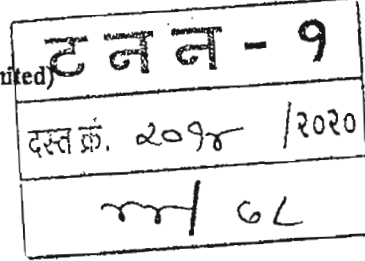 nited)
ट न न - १
दस्त क्रं. २०१४ /२०२०
/ ७८